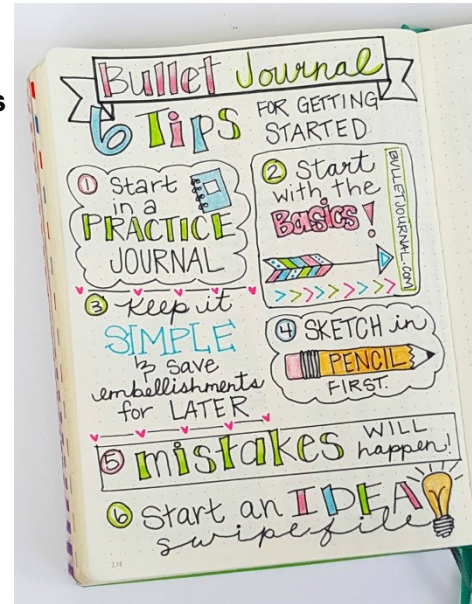 s
Bullet Journal
6 Tips
FOR GETTING
STARTED
1 Start
in a
PRACTICE
JOURNAL
2 Start
with the
Basics!
BULLETJOURNAL.COM
3 Keep it
SIMPLE
& save
embellishments
for LATER
4 SKETCH in
PENCIL
FIRST.
5 mistakes WILL
happen!
6 Start an IDEA
swipe file
238